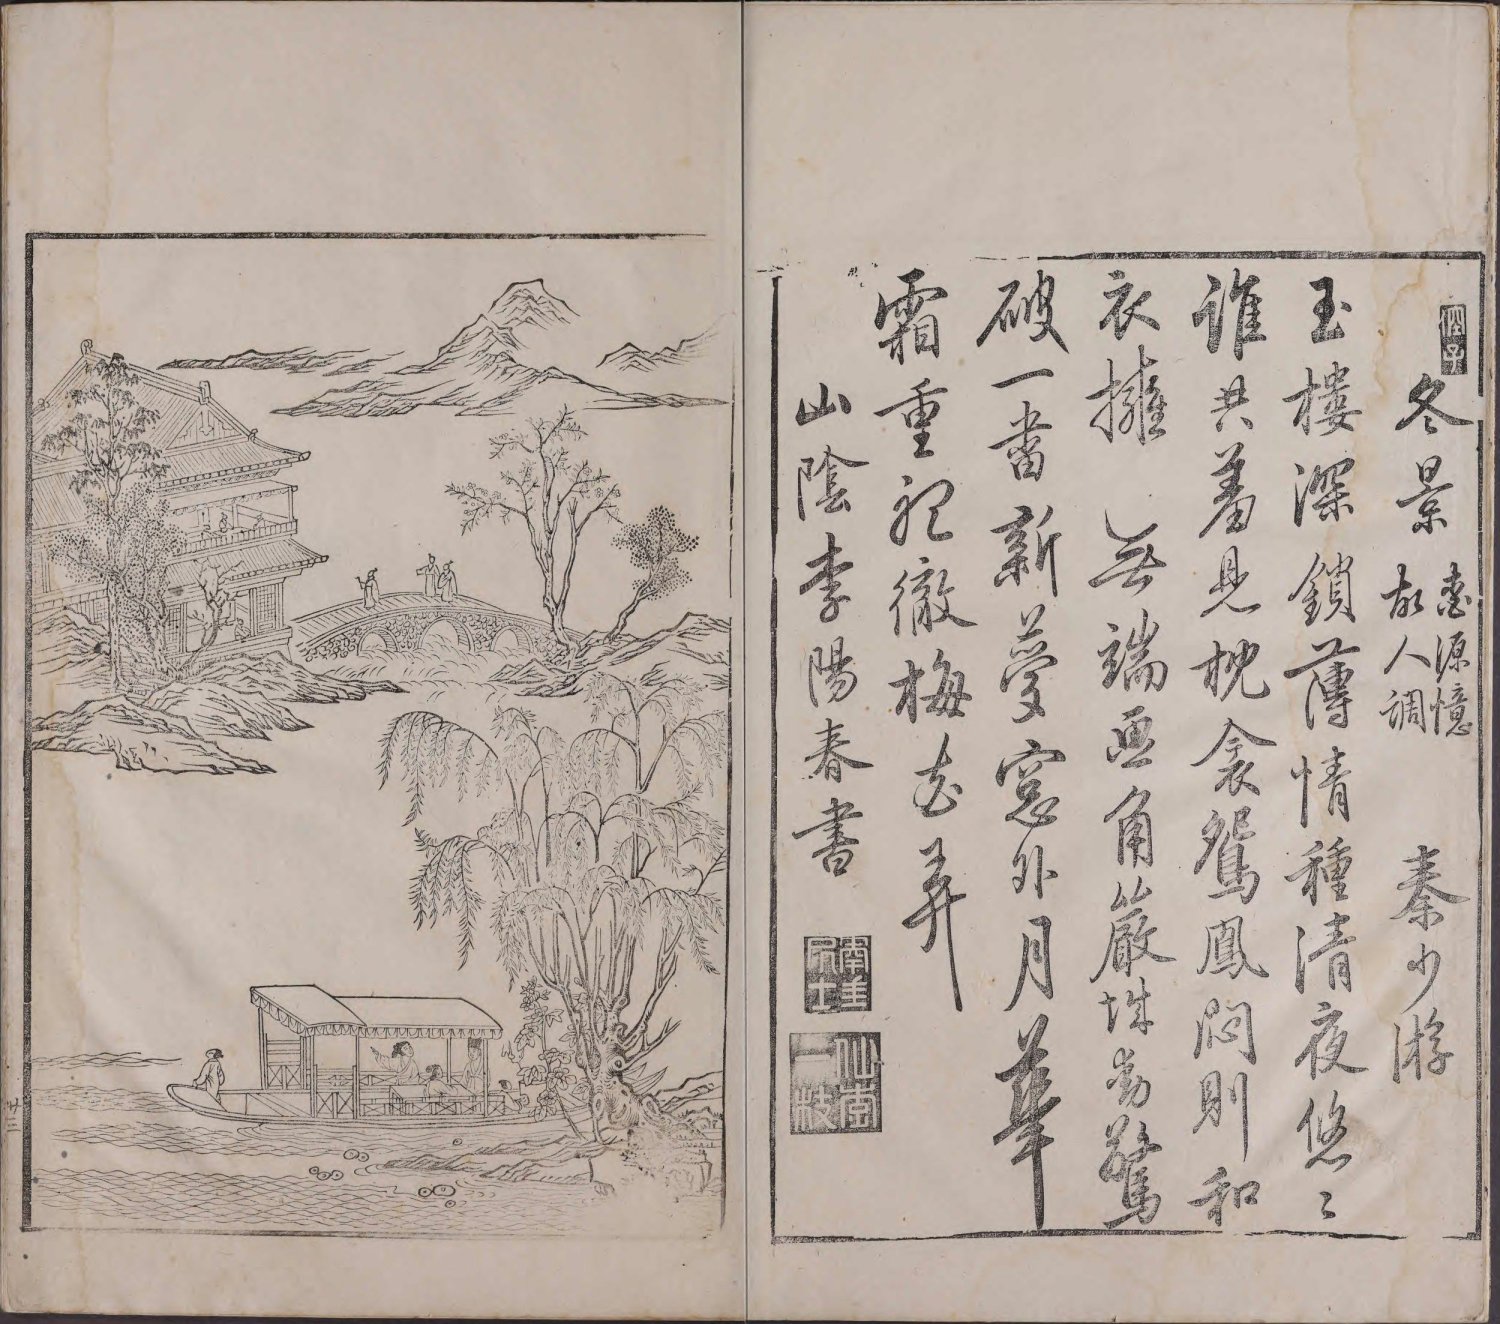 冬景 桃源憶故人調 秦少游
玉樓深鎖薄情種清夜悠〻
誰共羞見枕衾鴛鳳悶則和
衣擁 無端画角嚴城動驚
破一番新夢窓外月華
霜重聽徹梅花弄
山陰李陽春書
廿三